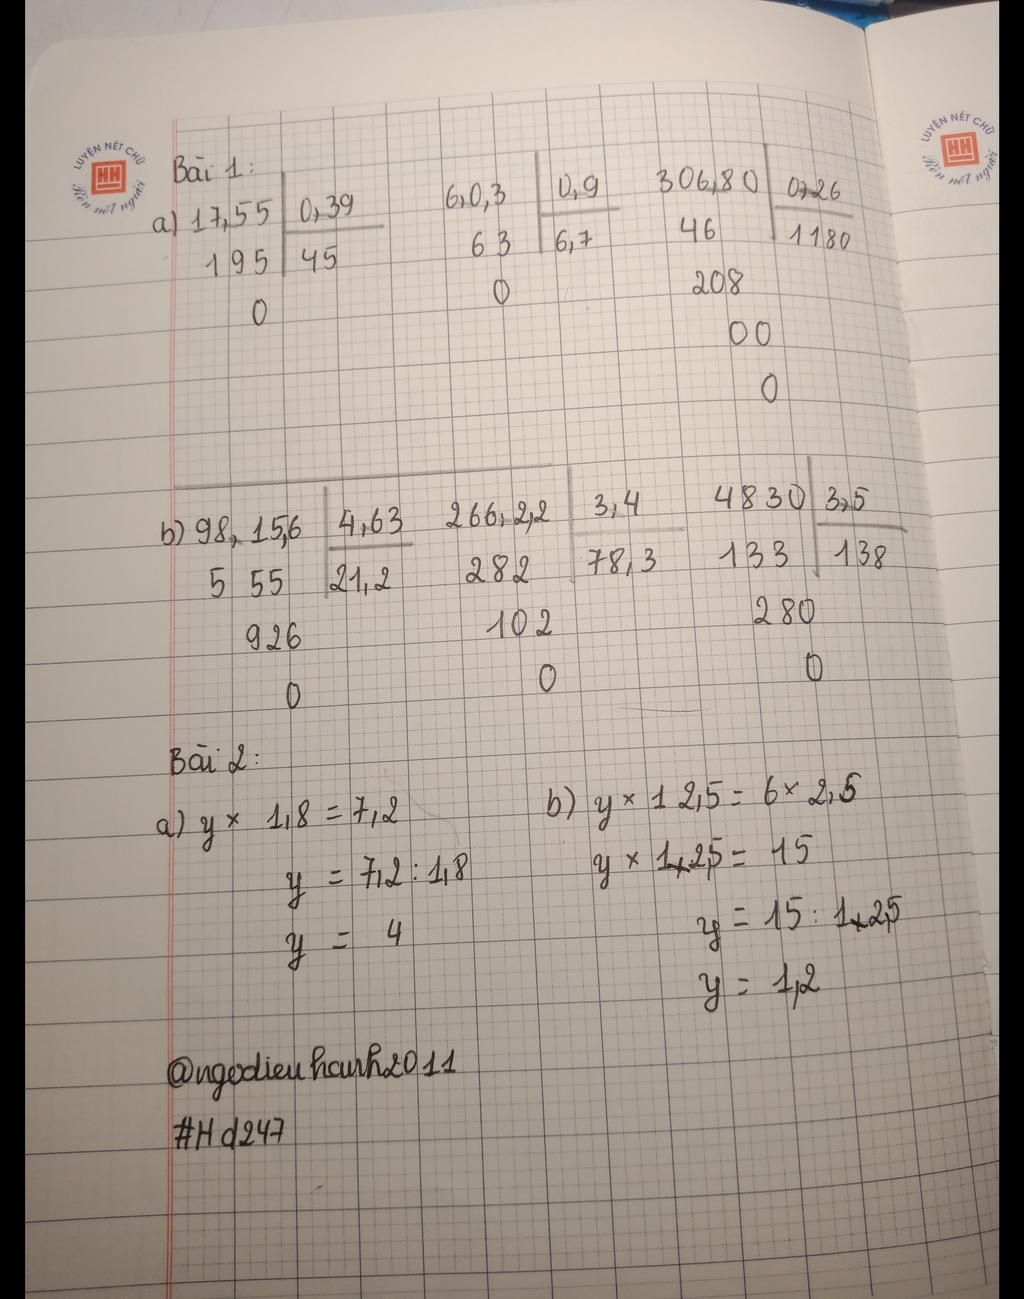 LUYỆN NÉT CHỮ
HH
Rèn nết người
LUYỆN NÉT CHỮ
HH
Rèn nết người
Bài 1:
a) 17,55 0,39 6,0,3 0,9 306,80 0,26
195 45 63 6,7 46 1180
0 0 208
00
0
b) 98,15,6 4,63 266,2,2 3,4 4830 3,5
5 55 21,2 282 78,3 133 138
926 102 280
0 0 0
Bài 2:
a) y × 1,8 = 7,2 b) y × 12,5 = 6 × 2,5
y = 7,2 : 1,8 y × 12,5 = 15
y = 4 y = 15 : 12,5
y = 1,2
@ngodieuhanh2011
#Hd247